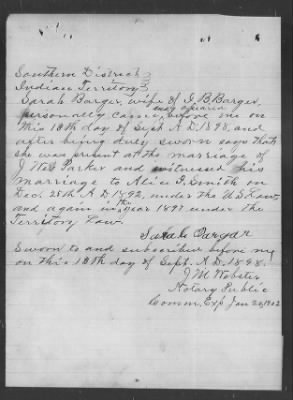 Southern District
Indian Territory
Sarah Barger, wife of J. B. Barger,
personally came before me on
this 10th day of Sept A.D. 1898, and
after being duly sworn says that
she was present at the marriage of
J. W. Parker and witnessed his
marriage to Alice G. Smith on
Dec. 28th A.D. 1892, under the U.S. Law
and again in the year 1897 under the
Territory Law.
Sarah Bargar
Sworn to and subscribed before me
on this 10th day of Sept. A.D. 1898.
J M Webster
Notary Public
Comm. Exp Jan 20, 1902